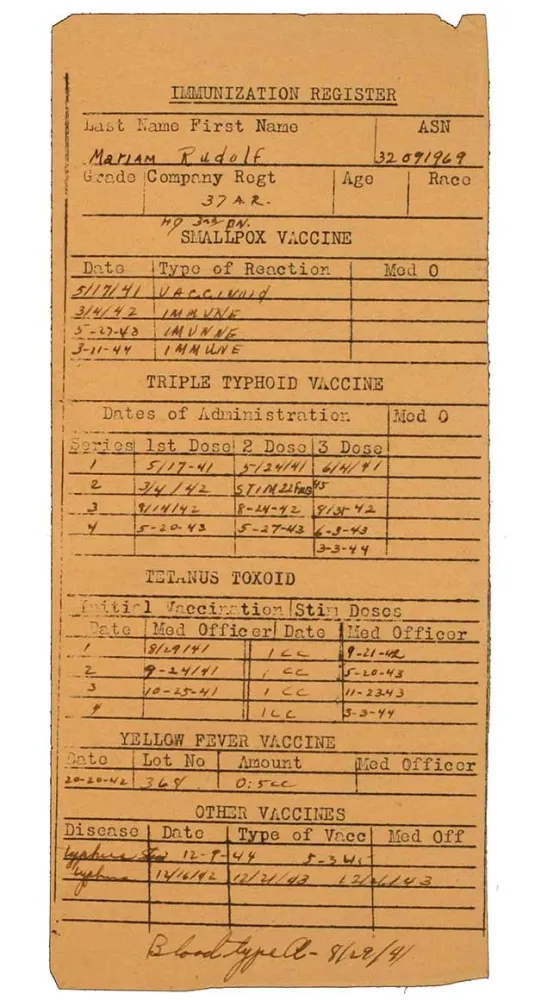 IMMUNIZATION REGISTER
Last Name First Name ASN
Mariam Rudolf 32 091969
Grade Company Regt Age Race
37 A.R.
HQ 3rd BN.
SMALLPOX VACCINE
Date Type of Reaction Med O
5/17/41 VACCINOID
3/4/42 IMMUNE
5-27-43 IMUNNE
3-11-44 IMMUNE
TRIPLE TYPHOID VACCINE
Dates of Administration Med O
Series 1st Dose 2 Dose 3 Dose
1 5/17-41 5/24/41 6/4/41
2 3/4/42 STIM 22 FEB 45
3 8/14/42 8-24-42 8/31-42
4 5-20-43 5-27-43 6-3-43
3-3-44
TETANUS TOXOID
Initial Vaccination Stim Doses
Date Med Officer Date Med Officer
1 8/29/41 1 CC 9-21-42
2 9-24/41 1 CC 5-20-43
3 10-25-41 1 CC 11-23-43
4 1 CC 3-3-44
YELLOW FEVER VACCINE
Date Lot No Amount Med Officer
20-20-42 368 0:5cc
OTHER VACCINES
Disease Date Type of Vacc Med Off
typhus Stim 12-9-44 5-3-45
typhus 12/16/42 12/21/43
Blood type A- 8/29/41